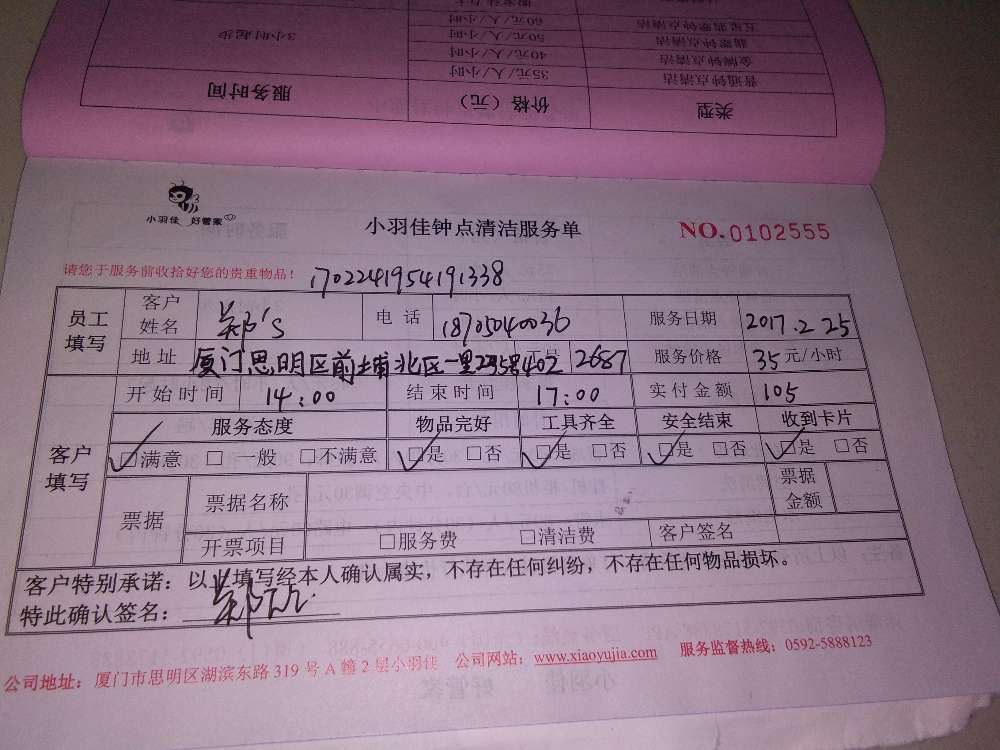 类型 价格（元） 服务时间
普通钟点清洁 35元/人/小时 3小时起步
金牌钟点清洁 40元/人/小时
翡翠钟点清洁 50元/人/小时
五星翡翠钟点清洁 60元/人/小时
小羽佳 好管家
小羽佳钟点清洁服务单
NO.0102555
请您于服务前收拾好您的贵重物品！
1702241954191338
员工填写 客户姓名 郑's 电话 18705040036 服务日期 2017.2 25
地址 厦门思明区前埔北区一里235号402 2687 服务价格 35元/小时
客户填写 开始时间 14:00 结束时间 17:00 实付金额 105
服务态度 物品完好 工具齐全 安全结束 收到卡片
☑满意 □一般 □不满意 ☑是 □否 ☑是 □否 ☑是 □否 ☑是 □否
票据 票据名称 票据金额
开票项目 □服务费 □清洁费 客户签名
客户特别承诺：以上填写经本人确认属实，不存在任何纠纷，不存在任何物品损坏。
特此确认签名：郑
公司地址：厦门市思明区湖滨东路319号A幢2层小羽佳 公司网站：www.xiaoyujia.com 服务监督热线：0592-5888123